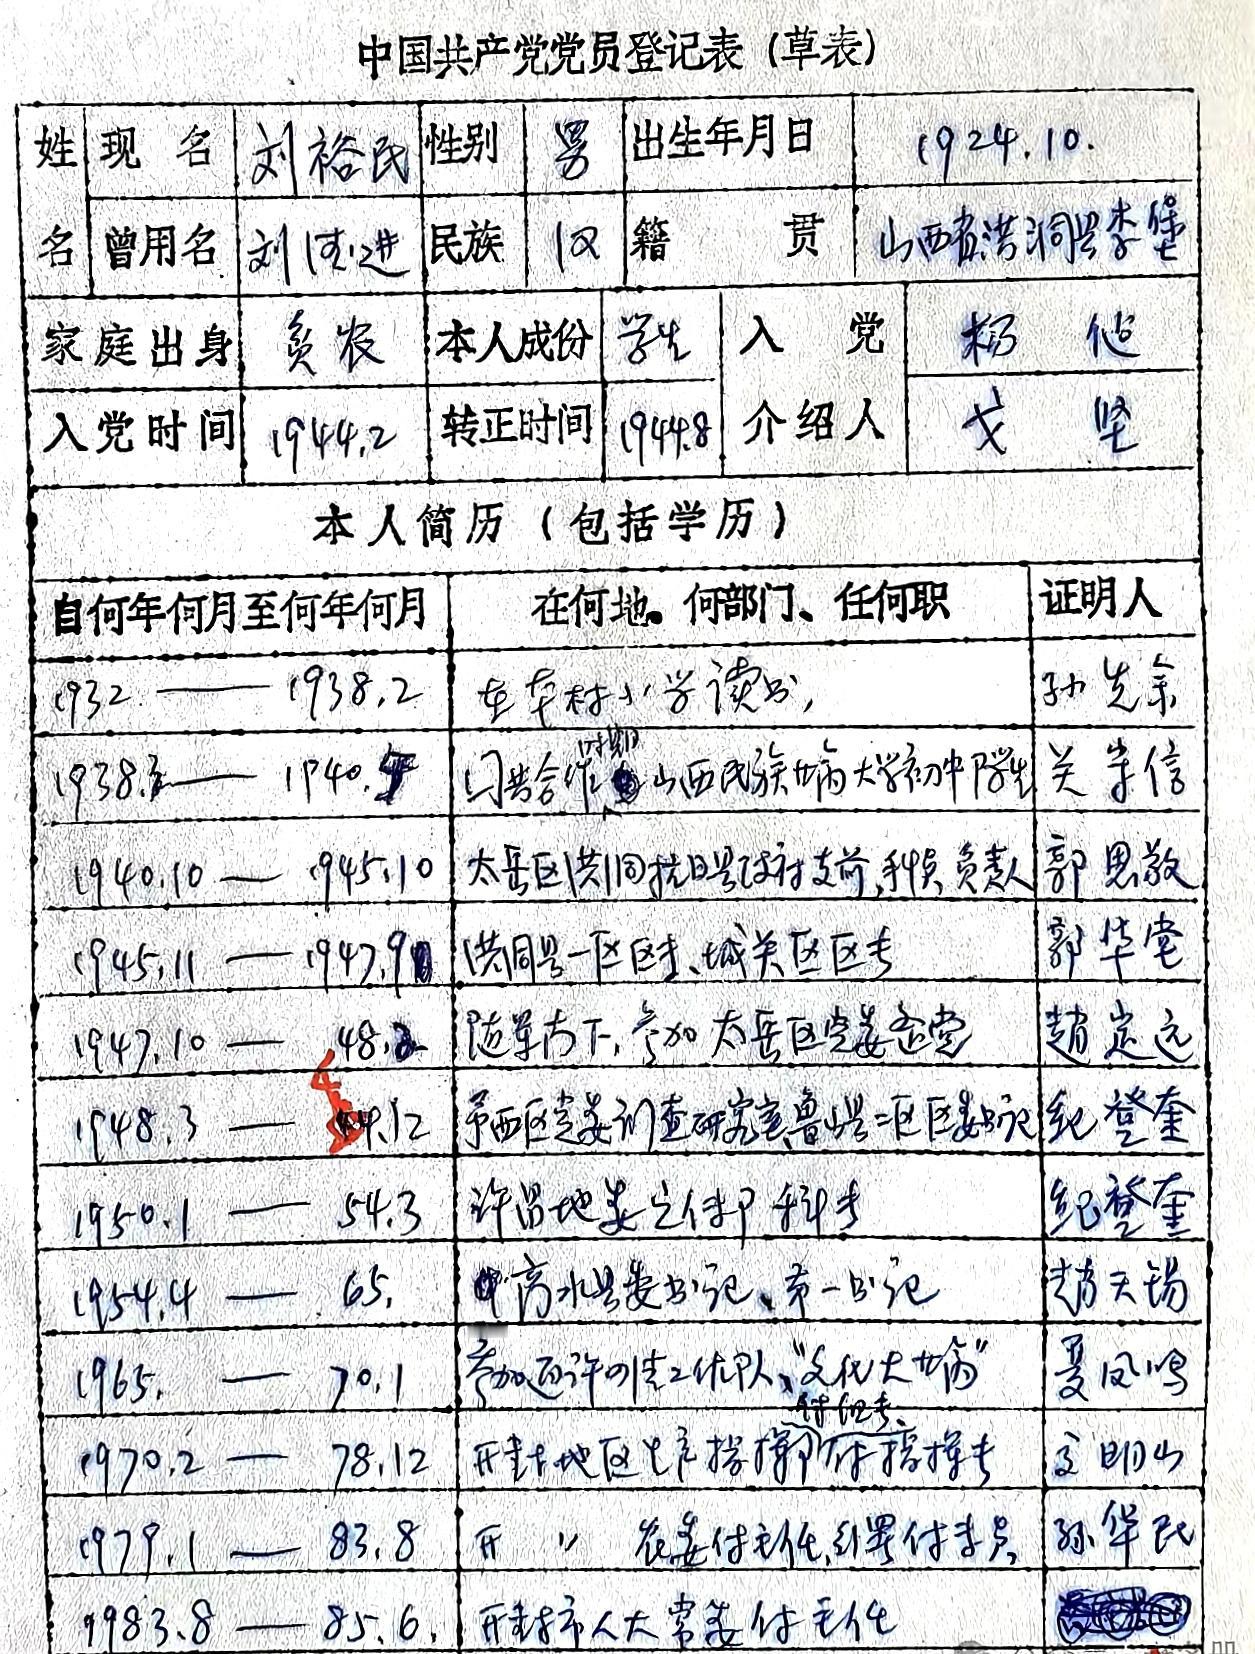 中国共产党党员登记表（草表）
姓名 现名 刘裕民 性别 男 出生年月日 1924.10.
曾用名 刘 进 民族 汉 籍贯 山西省洪洞县李堡
家庭出身 贫农 本人成份 学生 入党介绍人 杨
入党时间 1944.2 转正时间 1944.8 戈坚
本人简历（包括学历）
自何年何月至何年何月 在何地。何部门、任何职 证明人
1932 — 1938.2 在本村小学读书， 孙先余
时期
1938.3 — 1940. 门共合作 山西民族革命大学初中队学生 关 信
1940.10 — 945.10 太岳区洪洞抗日县政府支前,科员 负责人 郭思敬
1945.11 — 1947.9 洪洞县一区区长、城关区区长 郭华堂
1947.10 — 48.2 随军南下，参加太岳区党委整党 赵定远
1948.3 — 49.12 予西区党委调查研究室,鲁山县二区区委书记 纪登奎
1950.1 — 54.3 许昌地委宣传部科长 纪登奎
1954.4 — 65. 商水县委书记、第一书记 赵天锡
1965. — 70.1 参加 许四清工作队、“文化大革命” 夏凤鸣
付组长、
1970.2 — 78.12 开封地区生产指挥部付指挥长 文明山
1979.1 — 83.8 开 〃 农委付主任,行署付专员 孙华民
1983.8 — 85.6. 开封市人大常委付主任